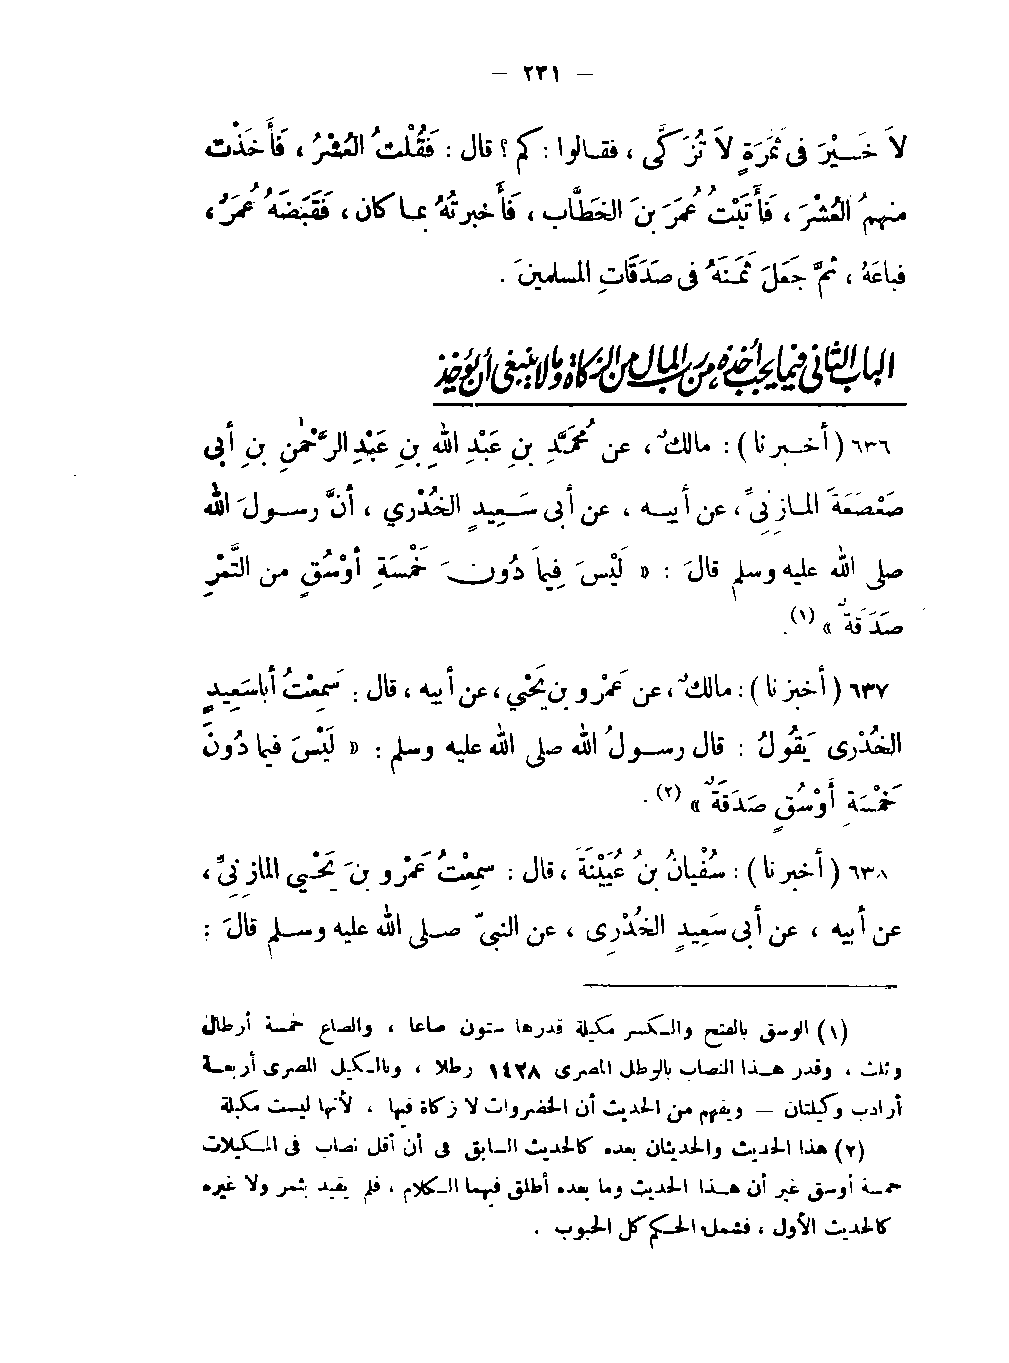 — ٢٣١ —
لاَ خَــيْرَ فى ثَمَرَةٍ لاَ تُزَكَّى ، فقـالوا : كم ؟ قال : فَقُلْتُ العُشْرُ ، فَأَخَذْت
منهمُ العُشْرَ ، فَأَتَيْتُ عُمَرَ بنَ الخَطَّاب ، فَأَخبرتُهُ بمـا كان ، فَقَبَضَهُ عُمَرُ ،
فباعَهُ ، ثمَّ جَعَلَ ثَمَـنَهُ فى صَدَقَاتِ المسلمينَ .
الباب الثانى فيما يجب أخذه من رب المال من الزكاة وما لا ينبغى أن يؤخذ
٦٣٦ ( أخـبرنا ) : مالكٌ ، عن مُحَمَّدِ بنِ عَبْدِ اللهِ بنِ عَبْدِ الرَّحْمٰنِ بنِ أبى
صَعْصَعَةَ المـازِنِىِّ ، عن أبيـه ، عن أبى سَـعِيدٍ الخُدْرِي ، أنَّ رسـولَ الله
صلى الله عليه وسلم قالَ : « لَيْسَ فِيمَا دُونَ خَمْسَةِ أَوْسُقٍ من التَّمْرِ
صَدَقةٌ » (١) .
٦٣٧ ( أخبرنا ) : مالكٌ ، عن عَمْرو بنِ يَحْيى ، عن أبيه ، قال : سَمِعْتُ أباسَعِيدٍ
الخُدْرى يَقُولُ : قال رسـولُ الله صلى الله عليه وسلم : « لَيْسَ فيما دُونَ
خَمْسَةِ أَوْسُقٍ صَدَقَةٌ » (٢) .
٦٣٨ ( أخبرنا ) : سُفْيانُ بنُ عُيَيْنَةَ ، قال : سمِعْتُ عَمْرو بنَ يَحْـيى المازِنِىَّ ،
عن أبيه ، عن أبى سَعِيدٍ الخُدْرِى ، عن النبىِّ صـلى الله عليه وسـلم قالَ :
(١) الوسق بالفتح والـكسر مكيلة قدرها ستون صاعا ، والصاع خمسة أرطال
وثلث ، وقدر هـذا النصاب بالرطل المصرى ١٤٢٨ رطلا ، وبالـكيل المصرى أربعـة
أرادب وكيلتان — ويفهم من الحديث أن الخضروات لا زكاة فيها ، لأنها ليست مكيلة
(٢) هذا الحديث والحديثان بعده كالحديث السـابق فى أن أقل نصاب فى المـكيلات
خمسـة أوسق غير أن هـذا الحديث وما بعده أطلق فيهما الـكلام ، فلم يقيد بثمر ولا غيره
كالحديث الأول ، فشمل الحـكم كل الحبوب .